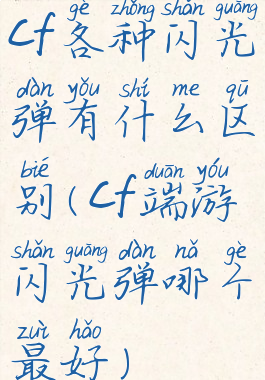 gè zhǒng shǎn guāng
cf各种闪光
dàn yǒu shí me qū
弹有什么区
bié duān yóu
别(cf端游
shǎn guāng dàn nǎ gè
闪光弹哪个
zuì hǎo
最好)